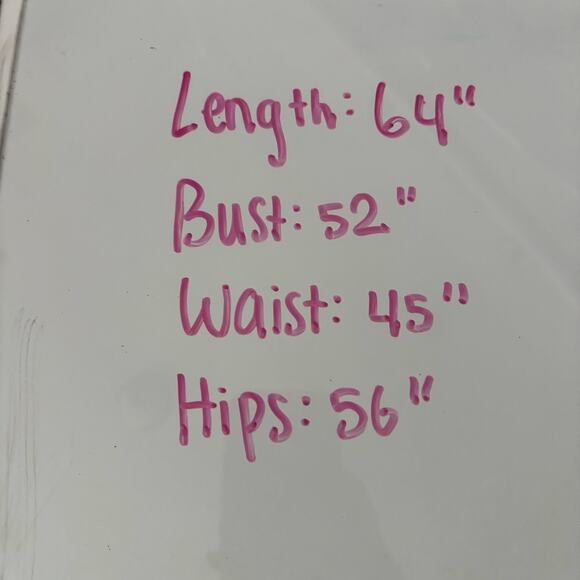 Length: 64"
Bust: 52"
Waist: 45"
Hips: 56"